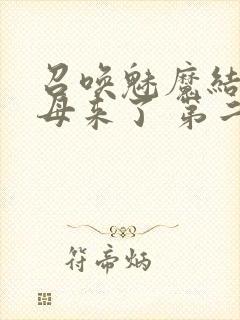 召唤魅魔结
母来了 第二
符帝炳